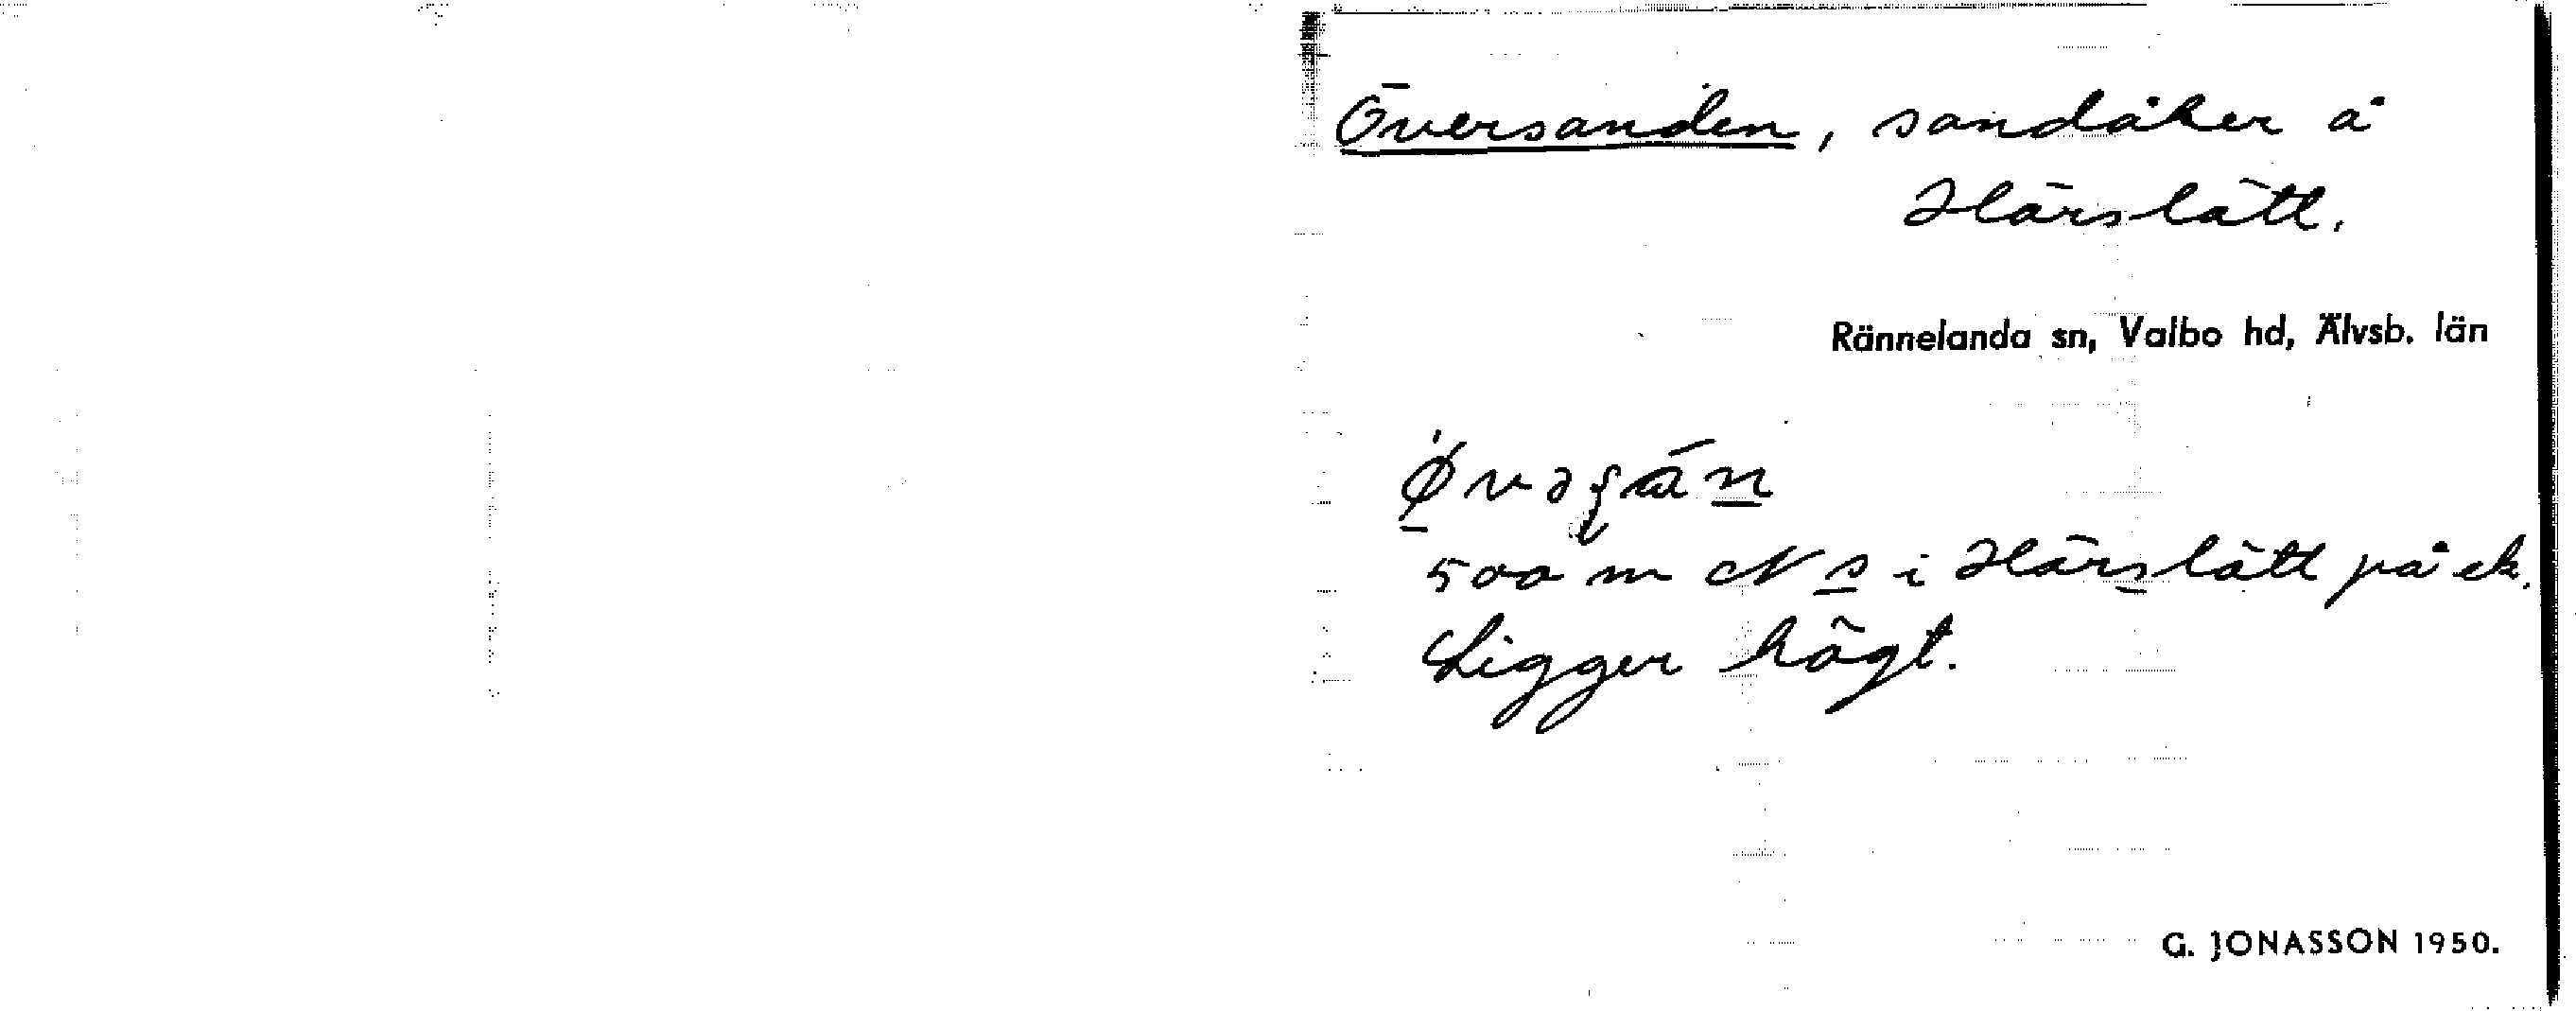 Översanden, sandåker å
Härslätt.
Rännelanda sn, Valbo hd, Älvsb. län
500 m N s i Härslätt på ek.
Ligger högt.
G. JONASSON 1950.